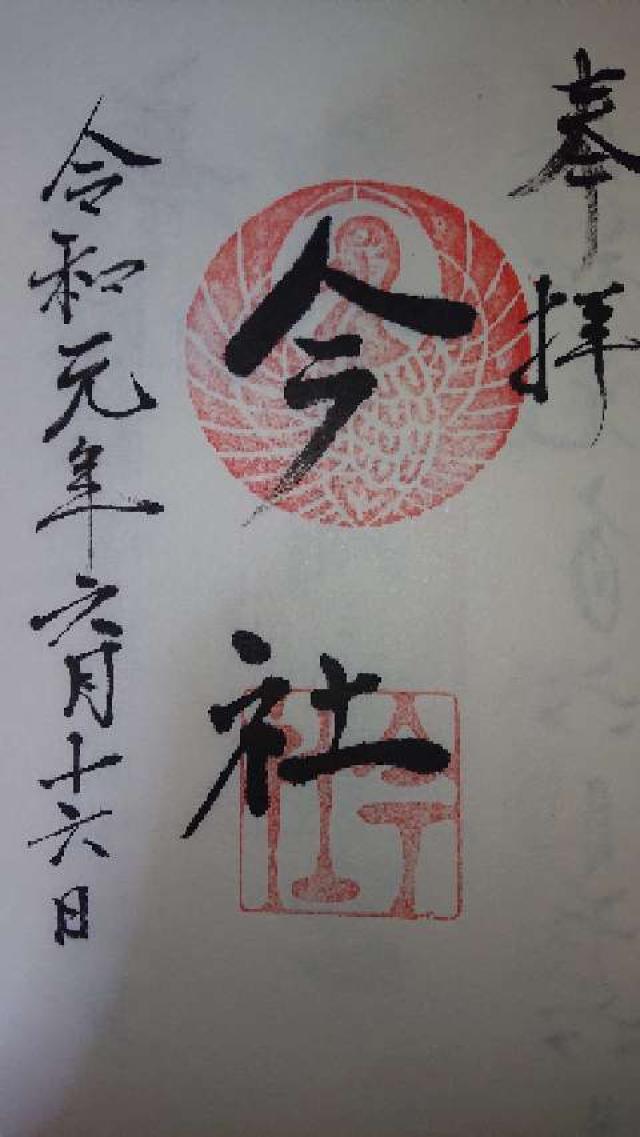 奉拝
今社
令和元年六月十六日
今社